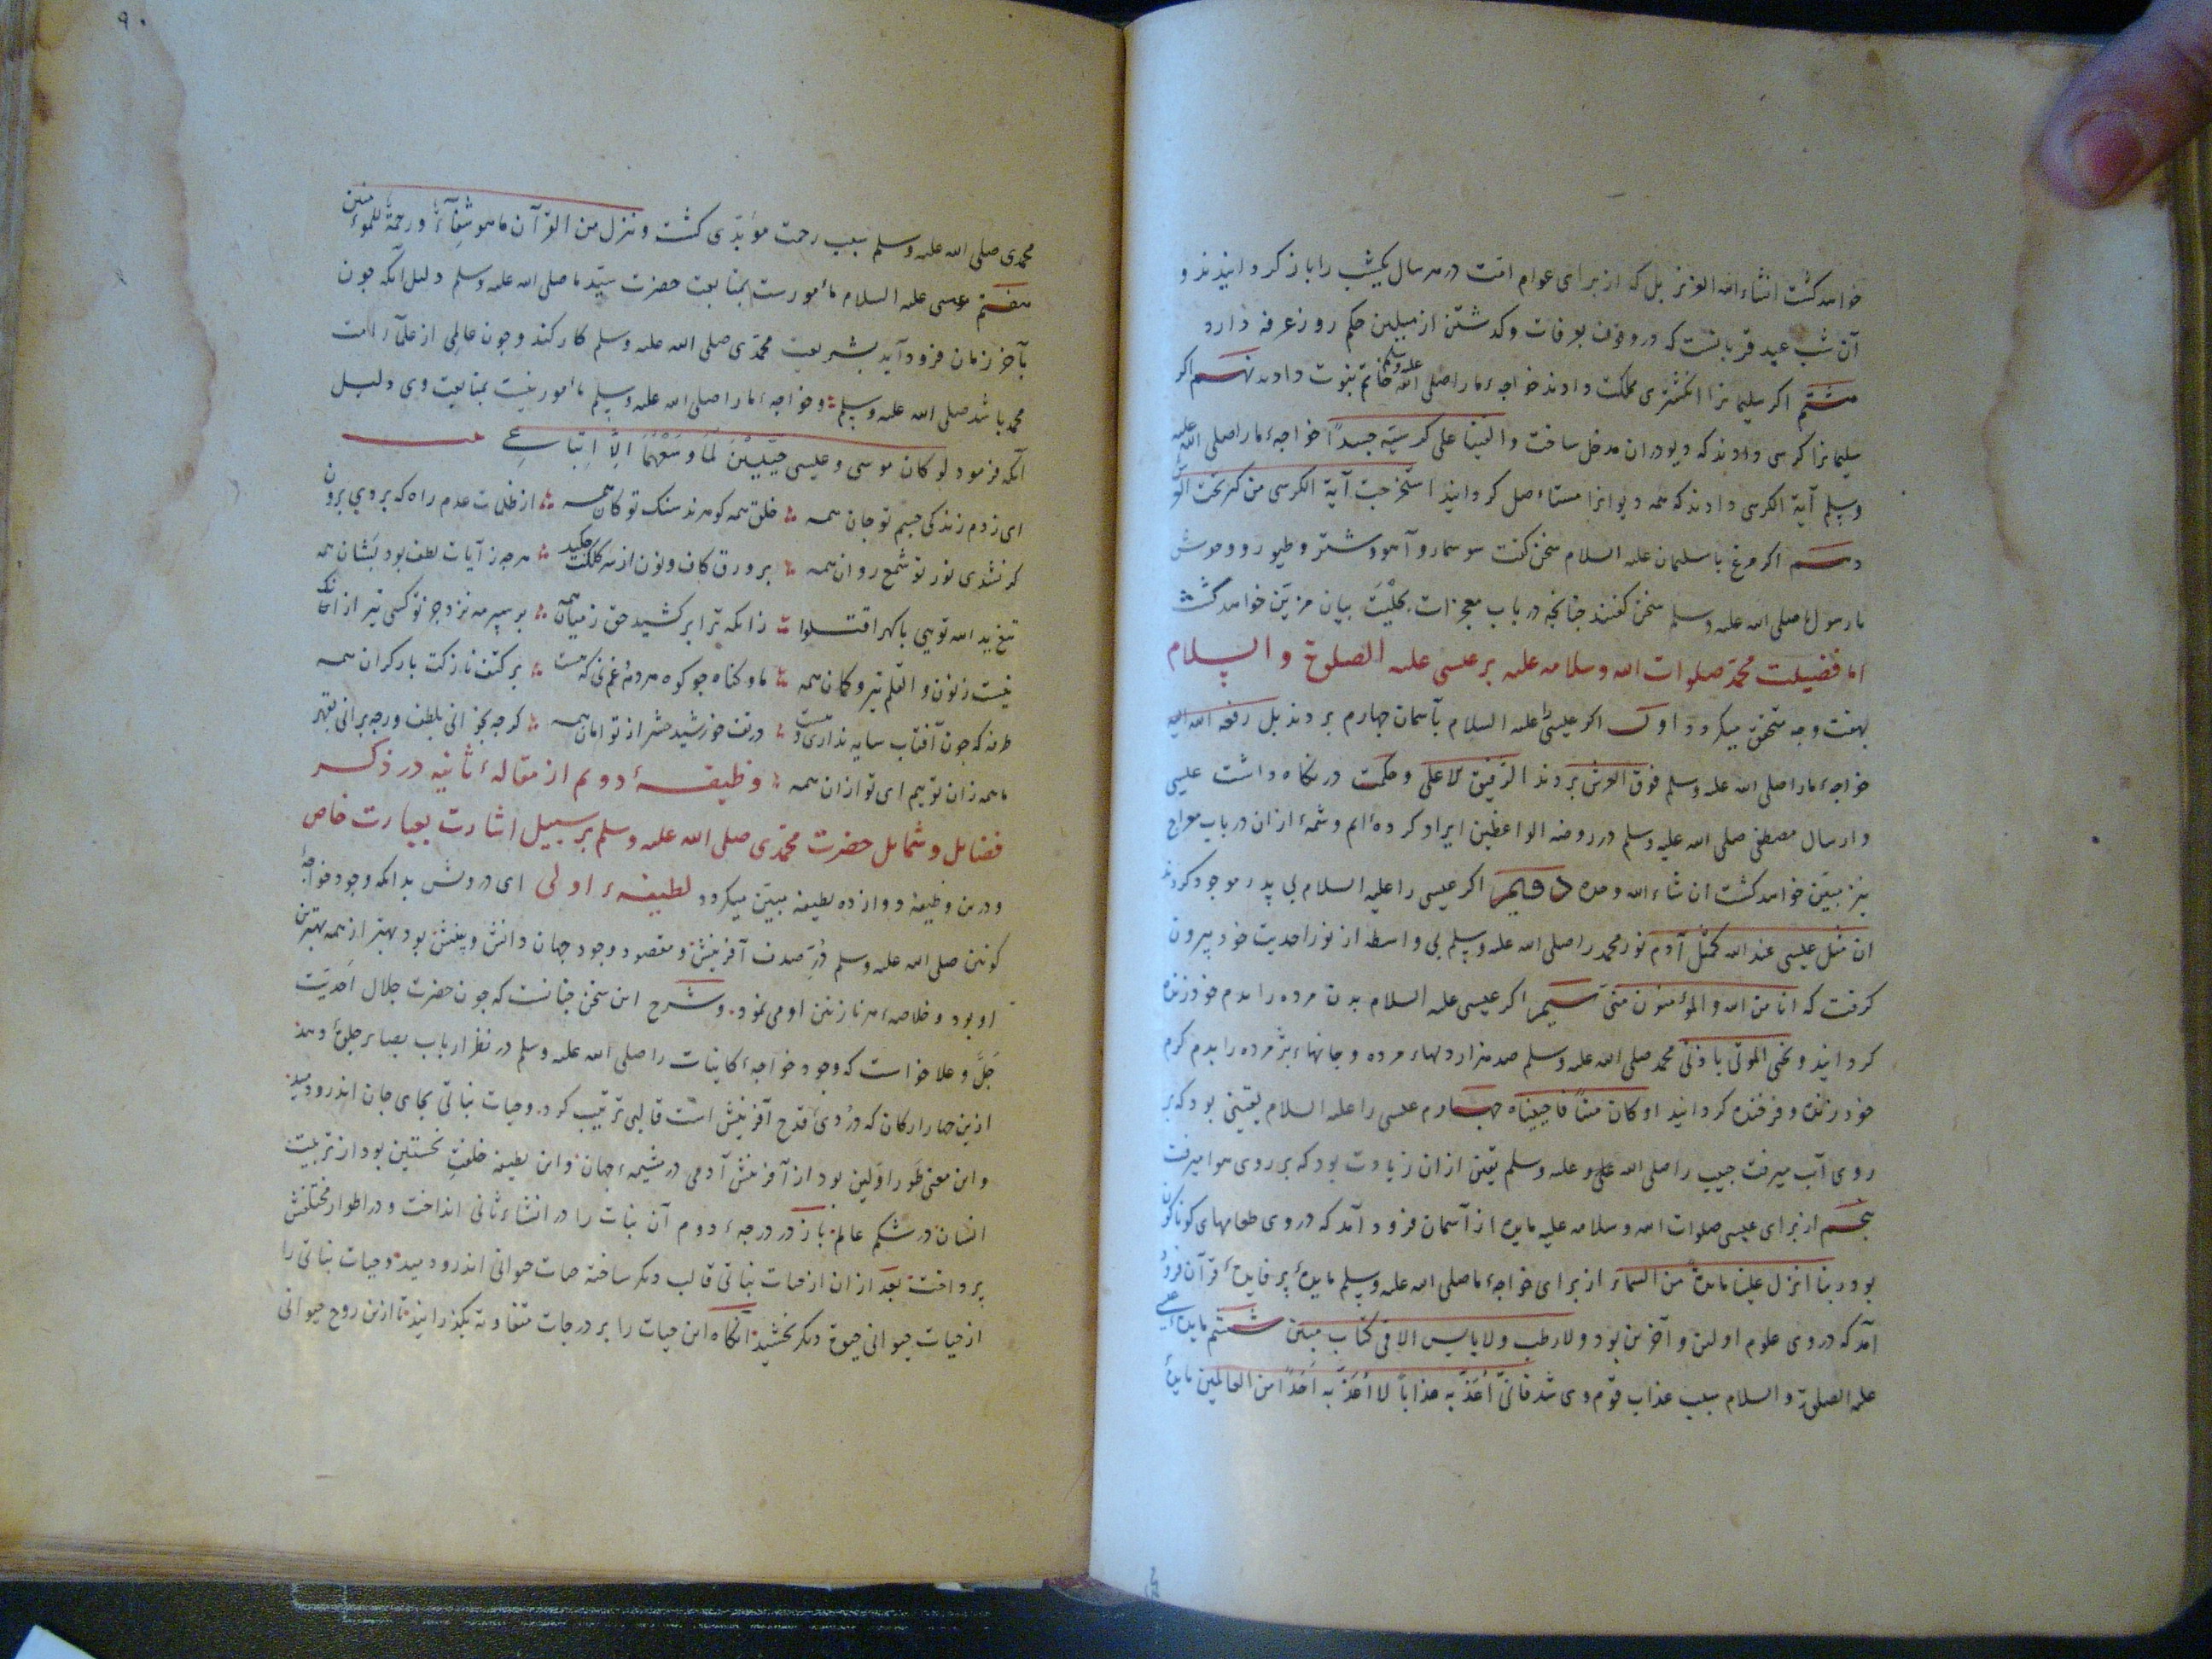 خواهد گشت انشاء الله العزیز بل که از برای عوام امت در هر سال یکشب را باز گردانیدند و
آن شب عید قربانست که در وقوف بعرفات و گذشتن از میلین حکم روز عرفه دارد
هشتم اگر سلیمانرا انگشتری مملکت دادند خواجهٔ ما را صلی الله علیه وسلم خاتم نبوت دادند نهم اگر
سلیمانرا کرسی دادند که دیو در ان مدخل ساخت والقینا علی کرسیه جسدًا خواجهٔ ما را صلی الله علیه
وسلم آیة الکرسی دادند که همه دیوانرا مستاصل گردانید استخرجت آیة الکرسی من کنز تحت العرش
دهم اگر مرغ با سلیمان علیه السلام سخن گفت سوسمار و آهو و شتر و طیور و وحوش
با رسول ما صلی الله علیه وسلم سخن گفتند چنانچه در باب معجزات بحلیت بیان مزین خواهد گشت
اما فضیلت محمد صلوات الله وسلامه علیه بر عیسی علیه الصلوة والسلام
بهفت وجه متحقق میگردد اول اگر عیسی را علیه السلام بآسمان چهارم بردند بل رفعه الله الیه
خواجهٔ ما را صلی الله علیه وسلم فوق العرش بردند الرفیق الاعلی و حکمت در نگاه داشت عیسی
و ارسال مصطفی صلی الله علیه وسلم در روضة الواعظین ایراد کرده‌ایم و شمهٔ از ان در باب معراج
نیز مبین خواهد گشت ان شاء الله وحده دویم اگر عیسی را علیه السلام بی پدر موجود کردند
ان مثل عیسی عند الله کمثل آدم نور محمد را صلی الله علیه وسلم بی واسطه از نور احدیت خود بیرون
گرفت که انا من الله والمؤمنون منی سیم اگر عیسی علیه السلام بدن مرده را بدم خود زنده
گردانید و تحی الموتی باذنی محمد صلی الله علیه وسلم صد هزار دلهاء مرده و جانهاء پژمرده را بدم کرم
خود زنده و فرخنده گردانید او کان میتًا فاحییناه چهارم عیسی را علیه السلام یقینی بود که بر
روی آب میرفت حبیب را صلی الله علیه وسلم یقین از ان زیادت بود که بر روی هوا میرفت
پنجم از برای عیسی صلوات الله وسلامه علیه مایده از آسمان فرود آمد که در وی طعامهای گوناگون
بود ربنا انزل علینا مایدة من السماء از برای خواجهٔ ما صلی الله علیه وسلم مایدهٔ پر فایدهٔ قرآن فرود
آمد که در وی علوم اولین و آخرین بود ولا رطب ولا یابس الا فی کتاب مبین ششم مایدهٔ عیسی
علیه الصلوة والسلام سبب عذاب قوم وی شد فانی اعذبه عذابًا لا اعذبه احدًا من العالمین مایدهٔ
۹۰
محمدی صلی الله علیه وسلم سبب رحمت مؤبدی گشت وننزل من القرآن ما هو شفآء ورحمة للمؤمنین
هفتم عیسی علیه السلام مأمورست بمتابعت حضرت سید ما صلی الله علیه وسلم دلیل آنکه چون
بآخر زمان فرود آید بشریعت محمدی صلی الله علیه وسلم کار کند و چون عالمی از علمآء امت
محمد باشد صلی الله علیه وسلم و خواجهٔ ما را صلی الله علیه وسلم مأمور نیست بمتابعت وی دلیل
آنکه فرمود لو کان موسی وعیسی حیّیْن لما وسعهما الا اتباعی
ای ز دم زندگی جسم تو جان همه خلق همه گوهرند سنگ تو کان همه از ظلمات عدم راه که بردی برون
گر نشدی نور تو شمع روان همه بر ورق کاف و نون از سر کلکت چکید هرچه ز آیات لطف بود بشان همه
تیغ ید الله تویی با گهر اقتلوا زانکه ترا بر کشید حق ز میان همه بر سپر مه نزد جز تو کسی تیر از انک
نیست ز نون والقلم تیر و کمان همه ما و گناه چو کوه مرد نهٔ غم نی که هست بر کتف نازکت بار گران همه
طرفه که چون آفتاب سایه نداری و هست در تف خورشید حشر از تو امان همه گر چه بخوانی بلطف ور چه برانی بقهر
ما همه زان توییم ای تو از ان همه وظیفهٔ دویم از مقالهٔ ثانیه در ذکر
فضایل و شمایل حضرت محمدی صلی الله علیه وسلم بر سبیل اشارت بعبارت خاص
و درین وظیفه دوازده لطیفه مبین میگردد لطیفهٔ اولی ای درویش بدانکه وجود خواجهٔ
کونین صلی الله علیه وسلم دُرّ صدف آفرینش و مقصود وجود جهان دانش و بینش بود بهتر از همه بهترین
او بود و خلاصهٔ هر نازنین او می نمود و شرح این سخن چنانست که چون حضرت جلال احدیّت
جلّ وعلا خواست که وجود خواجهٔ کاینات را صلی الله علیه وسلم در نظر ارباب بصایر جلوهٔ دهد
ازین چهار ارکان که دُردیٔ قدح آفرینش است قالبی ترتیب کرد و حیات نباتی بجای جان اندرو دمید
و این معنی طور اولین بود از آفرینش آدمی در مشیمهٔ جهان و این لطیفه خلعت نخستین بود از تربیت
انسان در شکم عالم باز در درجهٔ دوم آن نبات را در انشاء ثانی انداخت و در اطوار مختلفش
پرداخت بعد از ان از حیات نباتی قالب دیگر ساخته حیات حیوانی اندرو دمید و حیات نباتی را
از حیات حیوانی حیوة دیگر بخشید آنگاه این حیات را بر درجات متفاوته بگذرانید تا ازین روح حیوانی